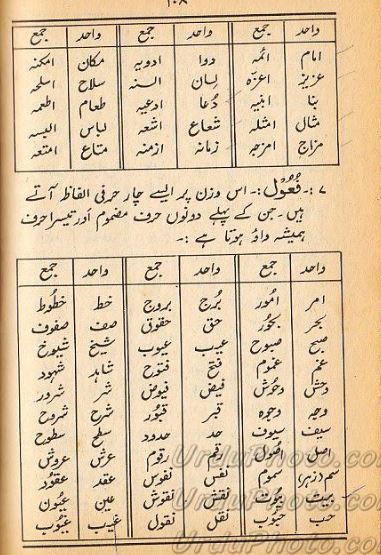 ۱۰۸
واحد جمع واحد جمع واحد جمع
امام ائمہ دوا ادویہ مکان امکنہ
عزیز اعزّہ لسان السنہ سلاح اسلحہ
بنا ابنیہ دُعا ادعیہ طعام اطعمہ
مثال امثلہ شعاع اشعہ لباس البسہ
مزاج امزجہ زمانہ ازمنہ متاع امتعہ
۷ :۔ فُعُوْل :۔ اس وزن پر ایسے چار حرفی الفاظ آتے
ہیں۔ جن کے پہلے دونوں حرف مضموم اور تیسرا حرف
ہمیشہ واؤ ہوتا ہے :۔
واحد جمع واحد جمع واحد جمع
امر امُور بُرج بروج خط خطُوط
بحر بحُور حق حقوق صف صفوف
صبح صبوح عیب عیوب شیخ شیوخ
غم غموم فتح فتوح شاہد شہود
وحش وحُوش فیض فیوض شر شرور
وجہ وجوہ قبر قبُور شرح شروح
سیف سیوف حد حدود سطح سطوح
اصل اصُول رقم رقوم عرش عروش
سم (زہر) سموم نفس نفوس عقد عقُود
بیت بیُوت نقش نقوش عین عیُون
حب حبُوب نقل نقول غیب غیُوب
UrduPhoto.com
UrduPhoto.com
UrduPhoto.com